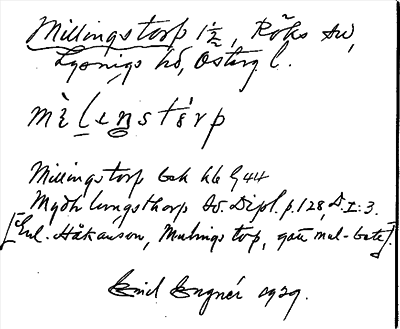 Millingstorp 1½, Röks sn,
Lysings hd, Österg l.
mɛ̀lɩŋstɷrp
Millingstorp Gsk kb 44
Mydhlungsthorp Sv. Dipl. p. 128, D. I: 3.
[Enl. Håkanson, Mulings torp, gău mul-bete].
Emil Engnér 1929.